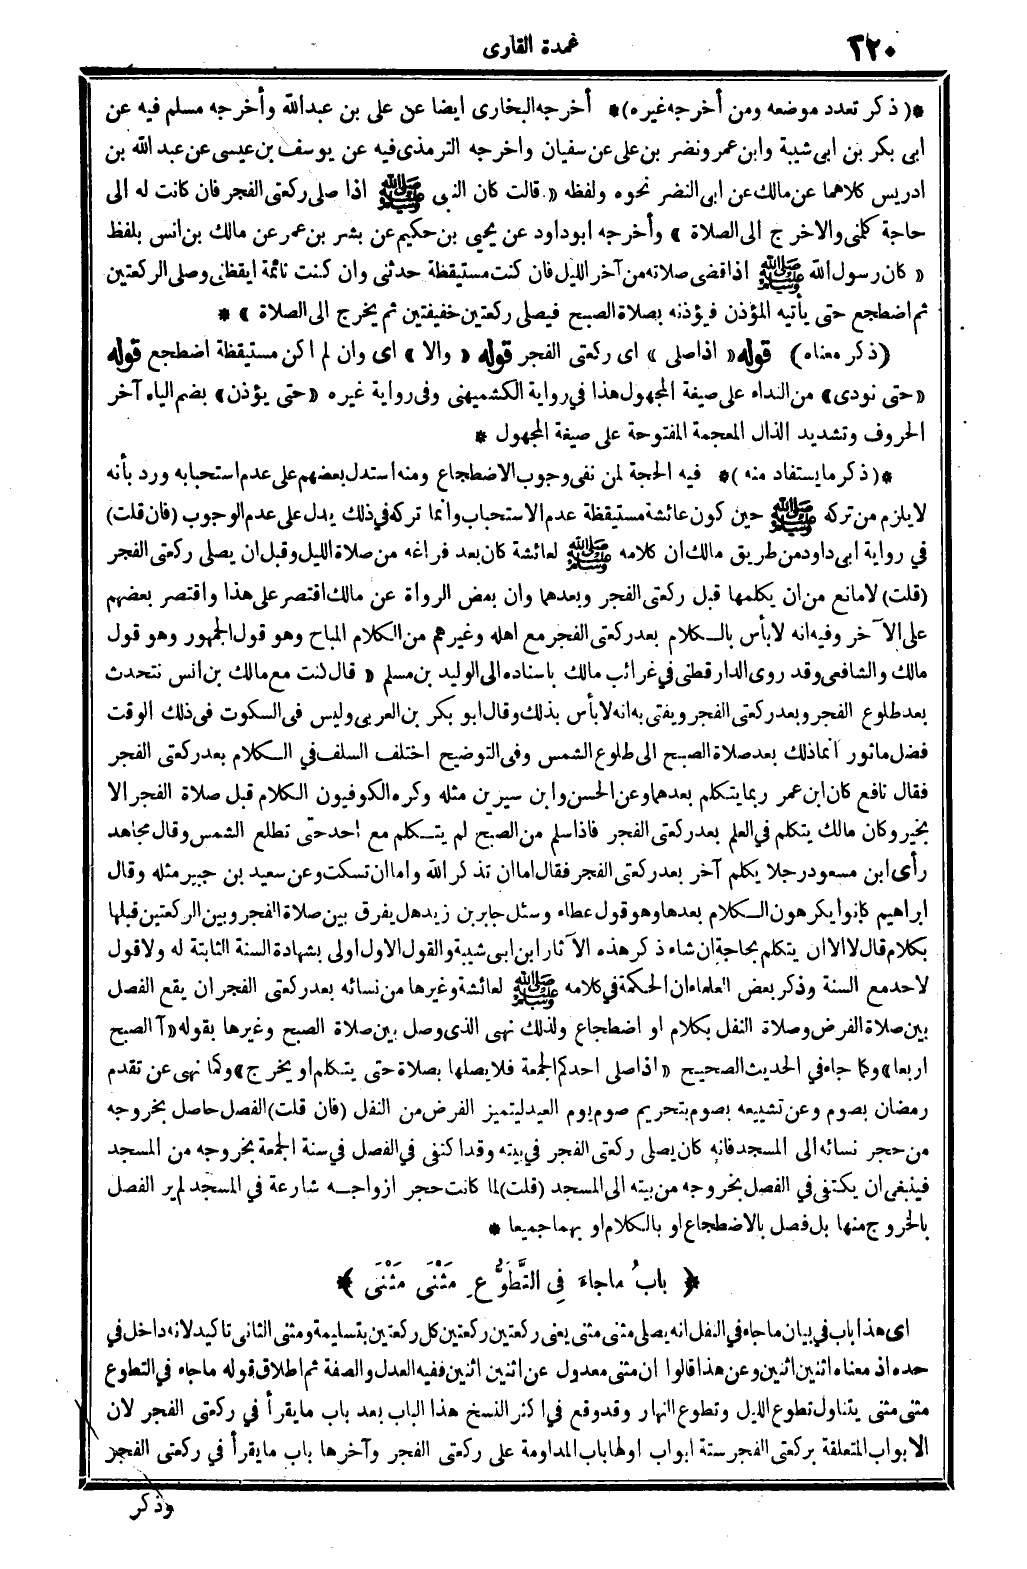 ٣٢٠
عمدة القارى
*( ذكر تعدد موضعه ومن أخرجه غيره )* أخرجه البخارى ايضا عن على بن عبد الله وأخرجه مسلم فيه عن
ابى بكر بن ابى شيبة وابن عمر ونضر بن على عن سفيان واخرجه الترمذى فيه عن يوسف بن عيسى عن عبد الله بن
ادريس كلاهما عن مالك عن ابى النضر نحوه ولفظه « قالت كان النبى ﷺ اذا صلى ركعتى الفجر فان كانت له الى
حاجة كلمنى والا خرج الى الصلاة » وأخرجه ابو داود عن يحيى بن حكيم عن بشر بن عمر عن مالك بن انس بلفظ
« كان رسول الله ﷺ اذا قضى صلاته من آخر الليل فان كنت مستيقظة حدثنى وان كنت نائمة ايقظنى وصلى الركعتين
ثم اضطجع حتى يأتيه المؤذن فيؤذنه بصلاة الصبح فيصلى ركعتين خفيفتين ثم يخرج الى الصلاة » *
( ذكر معناه ) قوله « اذا صلى » اى ركعتى الفجر قوله « والا » اى وان لم اكن مستيقظة اضطجع قوله
« حتى نودى » من النداء على صيغة المجهول هذا فى رواية الكشميهنى وفى رواية غيره « حتى يؤذن » بضم الياء آخر
الحروف وتشديد الذال المعجمة المفتوحة على صيغة المجهول *
*( ذكر ما يستفاد منه )* فيه الحجة لمن نفى وجوب الاضطجاع ومنه استدل بعضهم على عدم استحبابه ورد بأنه
لا يلزم من تركه ﷺ حين كون عائشة مستيقظة عدم الاستحباب وانما تركه فى ذلك يدل على عدم الوجوب (فان قلت)
فى رواية ابى داود من طريق مالك ان كلامه ﷺ لعائشة كان بعد فراغه من صلاة الليل وقبل ان يصلى ركعتى الفجر
(قلت) لا مانع من ان يكلمها قبل ركعتى الفجر وبعدهما وان بعض الرواة عن مالك اقتصر على هذا واقتصر بعضهم
على الآخر وفيه انه لا بأس بالكلام بعد ركعتى الفجر مع اهله وغيرهم من الكلام المباح وهو قول الجمهور وهو قول
مالك والشافعى وقد روى الدارقطنى فى غرائب مالك باسناده الى الوليد بن مسلم « قال كنت مع مالك بن انس نتحدث
بعد طلوع الفجر وبعد ركعتى الفجر ويفتى به انه لا بأس بذلك وقال ابو بكر بن العربى وليس فى السكوت فى ذلك الوقت
فضل مأثور انما ذلك بعد صلاة الصبح الى طلوع الشمس وفى التوضيح اختلف السلف فى الكلام بعد ركعتى الفجر
فقال نافع كان ابن عمر ربما يتكلم بعدهما وعن الحسن وابن سيرين مثله وكره الكوفيون الكلام قبل صلاة الفجر الا
بخير وكان مالك يتكلم فى العلم بعد ركعتى الفجر فاذا سلم من الصبح لم يتكلم مع احد حتى تطلع الشمس وقال مجاهد
رأى ابن مسعود رجلا يكلم آخر بعد ركعتى الفجر فقال اما ان تذكر الله واما ان تسكت وعن سعيد بن جبير مثله وقال
ابراهيم كانوا يكرهون الكلام بعدها وهو قول عطاء وسئل جابر بن زيد هل يفرق بين صلاة الفجر وبين الركعتين قبلها
بكلام قال لا الا ان يتكلم بحاجة ان شاء ذكر هذه الآثار ابن ابى شيبة والقول الاول اولى بشهادة السنة الثابتة له ولا قول
لاحد مع السنة وذكر بعض العلماء ان الحكمة فى كلامه ﷺ لعائشة وغيرها من نسائه بعد ركعتى الفجر ان يقع الفصل
بين صلاة الفرض وصلاة النفل بكلام او اضطجاع ولذلك نهى الذى وصل بين صلاة الصبح وغيرها بقوله «آ الصبح
اربعا» وكما جاء فى الحديث الصحيح « اذا صلى احدكم الجمعة فلا يصلها بصلاة حتى يتكلم او يخرج » وكما نهى عن تقدم
رمضان بصوم وعن تشييعه بصوم بتحريم صوم يوم العيد ليتميز الفرض من النفل (فان قلت) الفصل حاصل بخروجه
من حجر نسائه الى المسجد فانه كان يصلى ركعتى الفجر فى بيته وقد اكتفى فى الفصل فى سنة الجمعة بخروجه من المسجد
فينبغى ان يكتفى فى الفصل بخروجه من بيته الى المسجد (قلت) لما كانت حجر ازواجه شارعة فى المسجد لم ير الفصل
بالخروج منها بل فصل بالاضطجاع او بالكلام او بهما جميعا *
﴿ بابُ ما جاءَ فى التَّطَوُّعِ مَثْنَى مَثْنَى ﴾
اى هذا باب فى بيان ما جاء فى النفل انه يصلى مثنى مثنى يعنى ركعتين ركعتين كل ركعتين بتسليمة ومثنى الثانى تاكيد لانه داخل فى
حده اذ معناه اثنين اثنين وعن هذا قالوا ان مثنى معدول عن اثنين اثنين ففيه العدل والصفة ثم اطلاق قوله ما جاء فى التطوع
مثنى مثنى يتناول تطوع الليل وتطوع النهار وقد وقع فى اكثر النسخ هذا الباب بعد باب ما يقرأ فى ركعتى الفجر لان
الابواب المتعلقة بركعتى الفجر ستة ابواب اولها باب المداومة على ركعتى الفجر وآخرها باب ما يقرأ فى ركعتى الفجر
وذكر